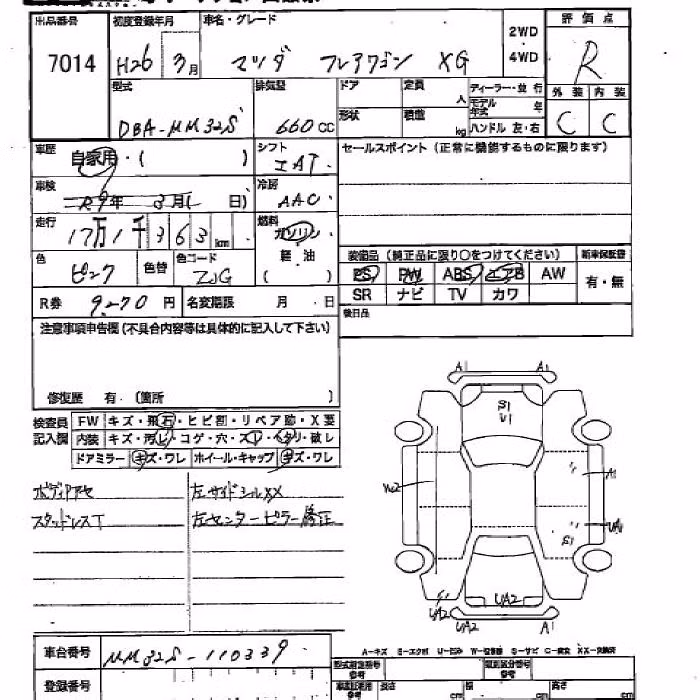 出品番号 初度登録年月 車名・グレード 2WD 評価点
7014 H26 3月 マツダ フレアワゴン XG 4WD R
型式 排気量 ドア 定員 人 ディーラー・並行 外装 内装
DBA-MM32S 660cc 形状 積載 kg モデル年式 年 ハンドル 左・右 C C
車歴 自家用・( ) シフト IAT セールスポイント(正常に機能するものに限ります)
車検 R9年 3月( 日) 冷房 AAC
走行 17万1千363km 燃料 ガソリン
色 ピンク 色替 色コード ZJG 軽油 ( )
装備品(純正品に限り○をつけてください) 新車保証書
PS PW ABS エアB AW 有・無
SR ナビ TV カワ
R券 9270円 名変期限 月 日 後日品
注意事項申告欄(不具合内容等は具体的に記入して下さい)
修復歴 有(箇所 )
検査員記入欄 FW キズ・飛石・ヒビ割・リペア跡・X要
内装 キズ・汚レ・コゲ・穴・スレ・ヘタリ・破レ
ドアミラー キズ・ワレ ホイール・キャップ キズ・ワレ
ボディアセ 左サイドシルXX
スタッドレスT 左センターピラー修正
A1 A1
S1
U1
W2 A1
UA1
S1
UA2 UA2
UA2 A1
A=キズ E=エクボ U=凹み W=補修跡 S=サビ C=腐食 XX=交換済
車台番号 MM32S-110339
登録番号 型式指定番号 参考 類別区分番号 参考
長さ cm 幅 cm 高さ cm